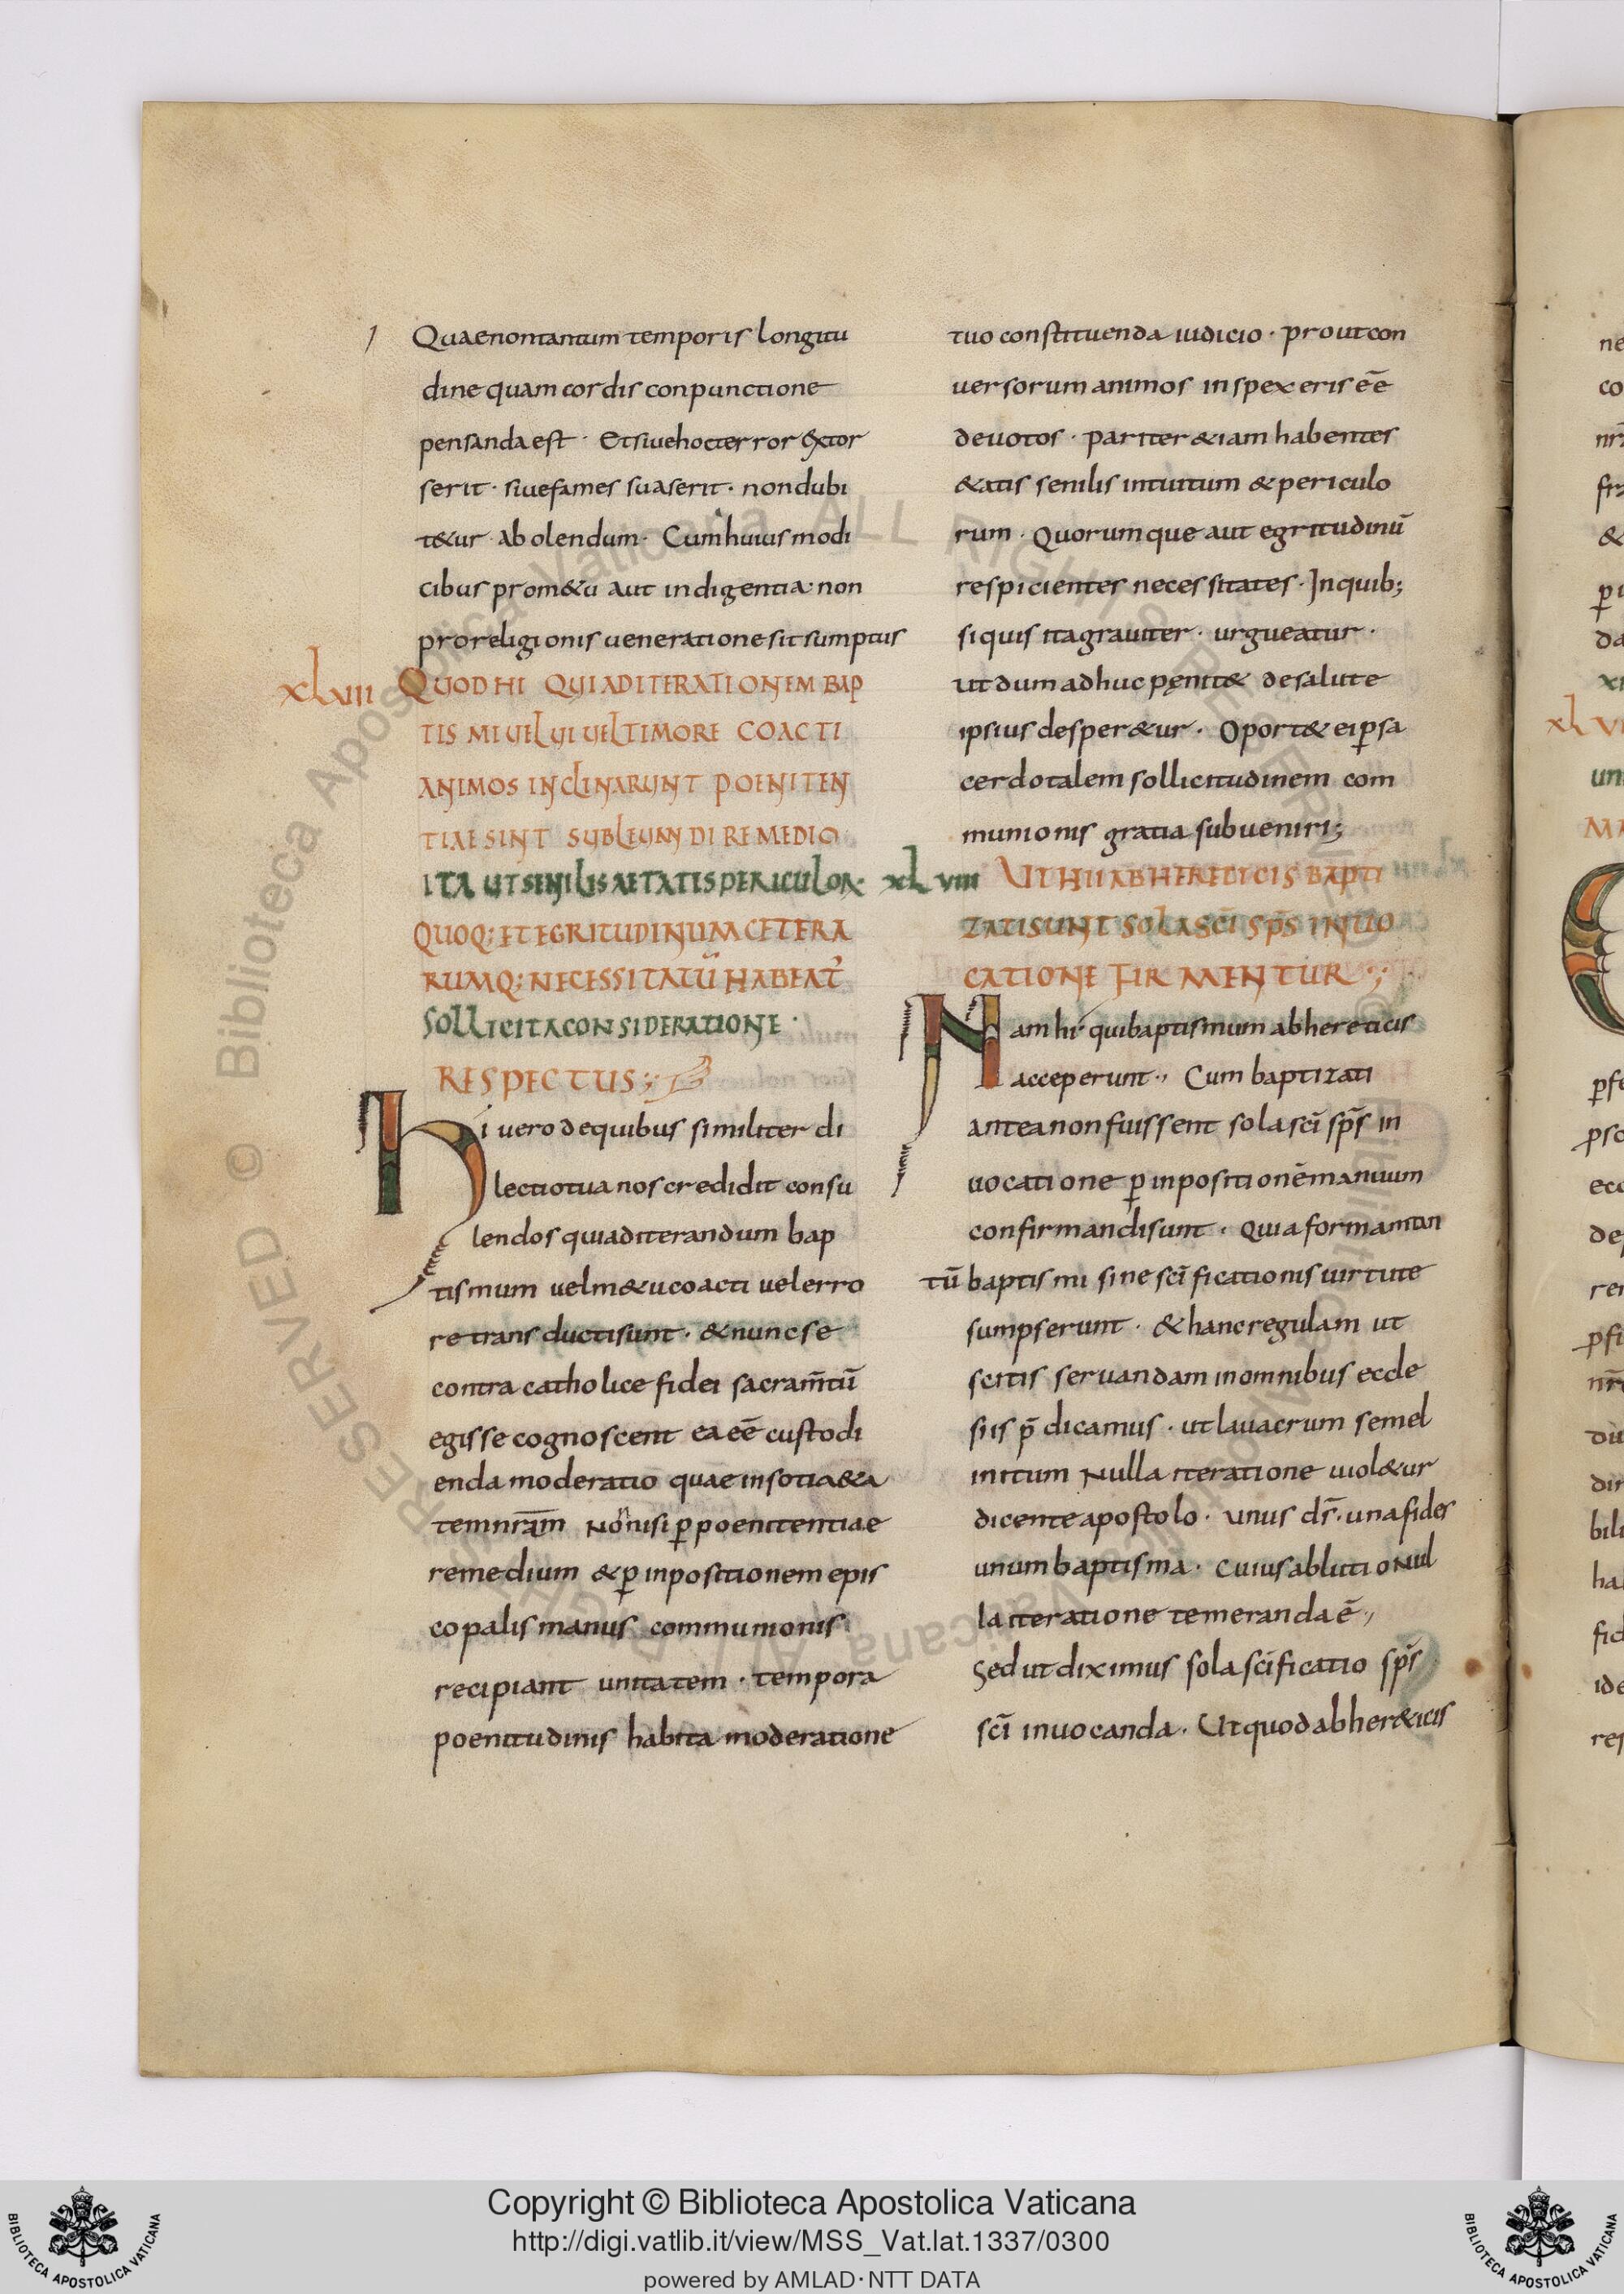 Quaenontantum temporis longitu
dine quam cordis conpunctione
pensanda est · Et siue hoc terror extor
serit · siue fames suaserit · non dubi
t&ur abolendum · Cum huius modi
cibus prom&u aut indigentia non
pro religionis ueneratione sit sumptus
xlvii QUOD HI QUI AD ITERATIONEM BAP
TISMI UEL UI UEL TIMORE COACTI
ANIMOS INCLINARUNT POENITEN
TIAE SINT SUBLEUANDI REMEDIO
ITA UT SENILIS AETATIS PERICULOR·
QUOQ; ET EGRITUDINUM CETERA
RUMQ; NECESSITATŪ HABEAT̉
SOLLICITA CONSIDERATIONE ·
RESPECTUS:;
Hi uero de quibus similiter di
lectio tua nos credidit consu
lendos qui ad iterandum bap
tismum uel m&u coacti uel erro
re trans ducti sunt · & nunc se
contra catholice fidei sacram̄tū
egisse cognoscent ea eē custodi
enda moderatio quae in sotia&a
tem nr̄am Nō nisi ꝑ poenitentiae
remedium & ꝑ inpositionem epis
copalis manus communionis
recipiant unitatem · tempora
poenitudinis habita moderatione
tuo constituenda iudicio · prout con
uersorum animos inspexeris eē
deuotos · pariter &iam habentes
&atis senilis intuitum & periculo
rum · Quorumque aut egritudinū
respicientes necessitates · In quib;
si quis ita grauiter · urgueatur ·
ut dum adhuc pęnit& de salute
ipsius desper&ur · Oport& ei ꝑ sa
cerdotalem sollicitudinem com
munionis gratia subueniri;
xlviii UT HII AB HERETICIS BAPTI
ZATI SUNT SOLA SC̄I SP̄S INUO
CATIONE FIRMENTUR ·;
Nam hi· qui baptismum ab hereticis
acceperunt·, Cum baptizati
antea non fuissent sola sc̄i sp̄s in
uocatione ꝑ inpositionē manuum
confirmandi sunt · Quia formam tan
tū baptismi sine sc̄ificationis uirtute
sumpserunt · & hanc regulam ut
scitis seruandam in omnibus eccle
siis p̄dicamus · ut lauacrum semel
initum Nulla iteratione uiol&ur
dicente apostolo · unus ds̄ · una fides
unum baptisma · Cuius ablutio Nul
la iteratione temeranda ē·,
Sed ut diximus sola sc̄ificatio sp̄s
sc̄i inuocanda · Ut quod ab her&icis
Copyright © Biblioteca Apostolica Vaticana
http://digi.vatlib.it/view/MSS_Vat.lat.1337/0300
powered by AMLAD·NTT DATA